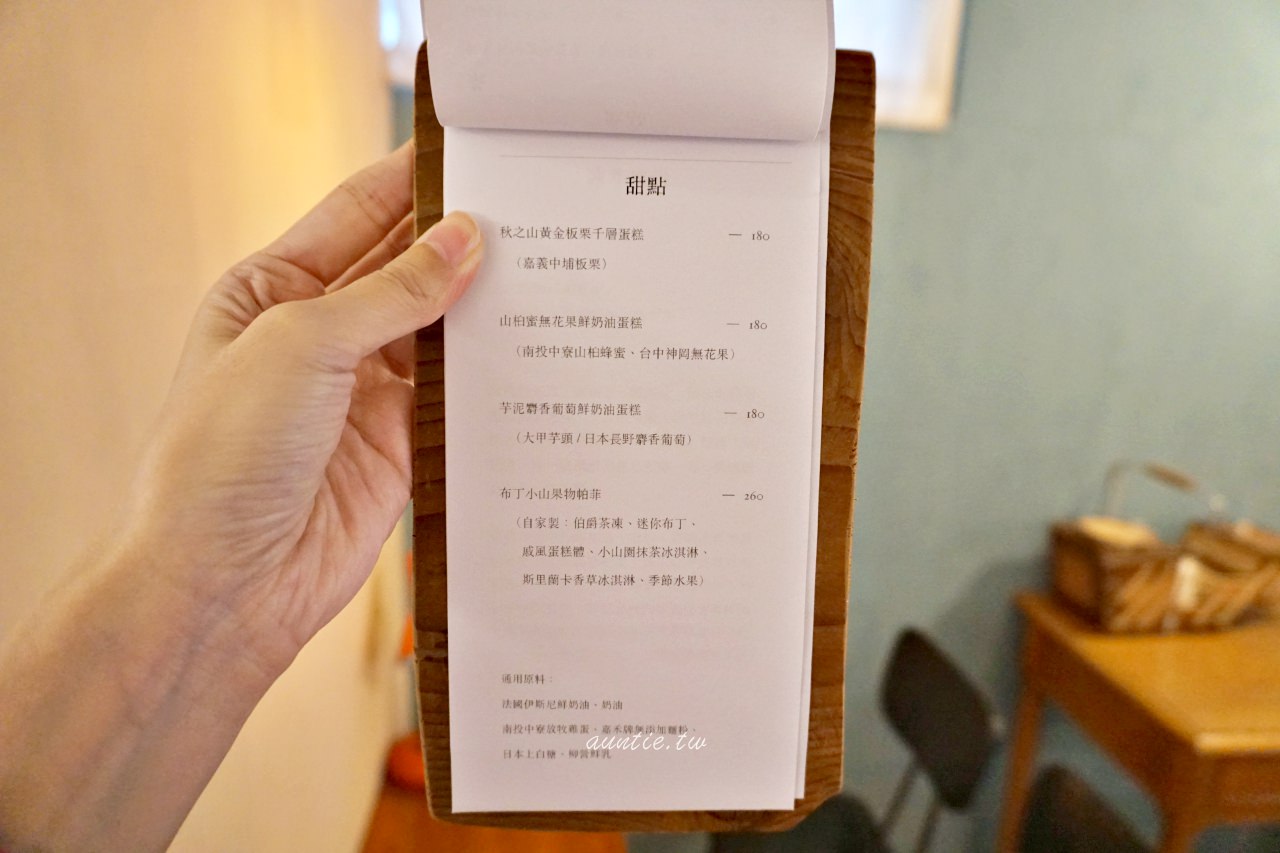 甜點
秋之山黃金板栗千層蛋糕 — 180
（嘉義中埔板栗）
山柏蜜無花果鮮奶油蛋糕 — 180
（南投中寮山柏蜂蜜、台中神岡無花果）
芋泥麝香葡萄鮮奶油蛋糕 — 180
（大甲芋頭 / 日本長野麝香葡萄）
布丁小山果物帕菲 — 260
（自家製：伯爵茶凍、迷你布丁、
戚風蛋糕體、小山園抹茶冰淇淋、
斯里蘭卡香草冰淇淋、季節水果）
通用原料：
法國伊斯尼鮮奶油、奶油
南投中寮放牧雞蛋、嘉禾牌無添加麵粉、
auntie.tw
日本上白糖、柳營鮮乳